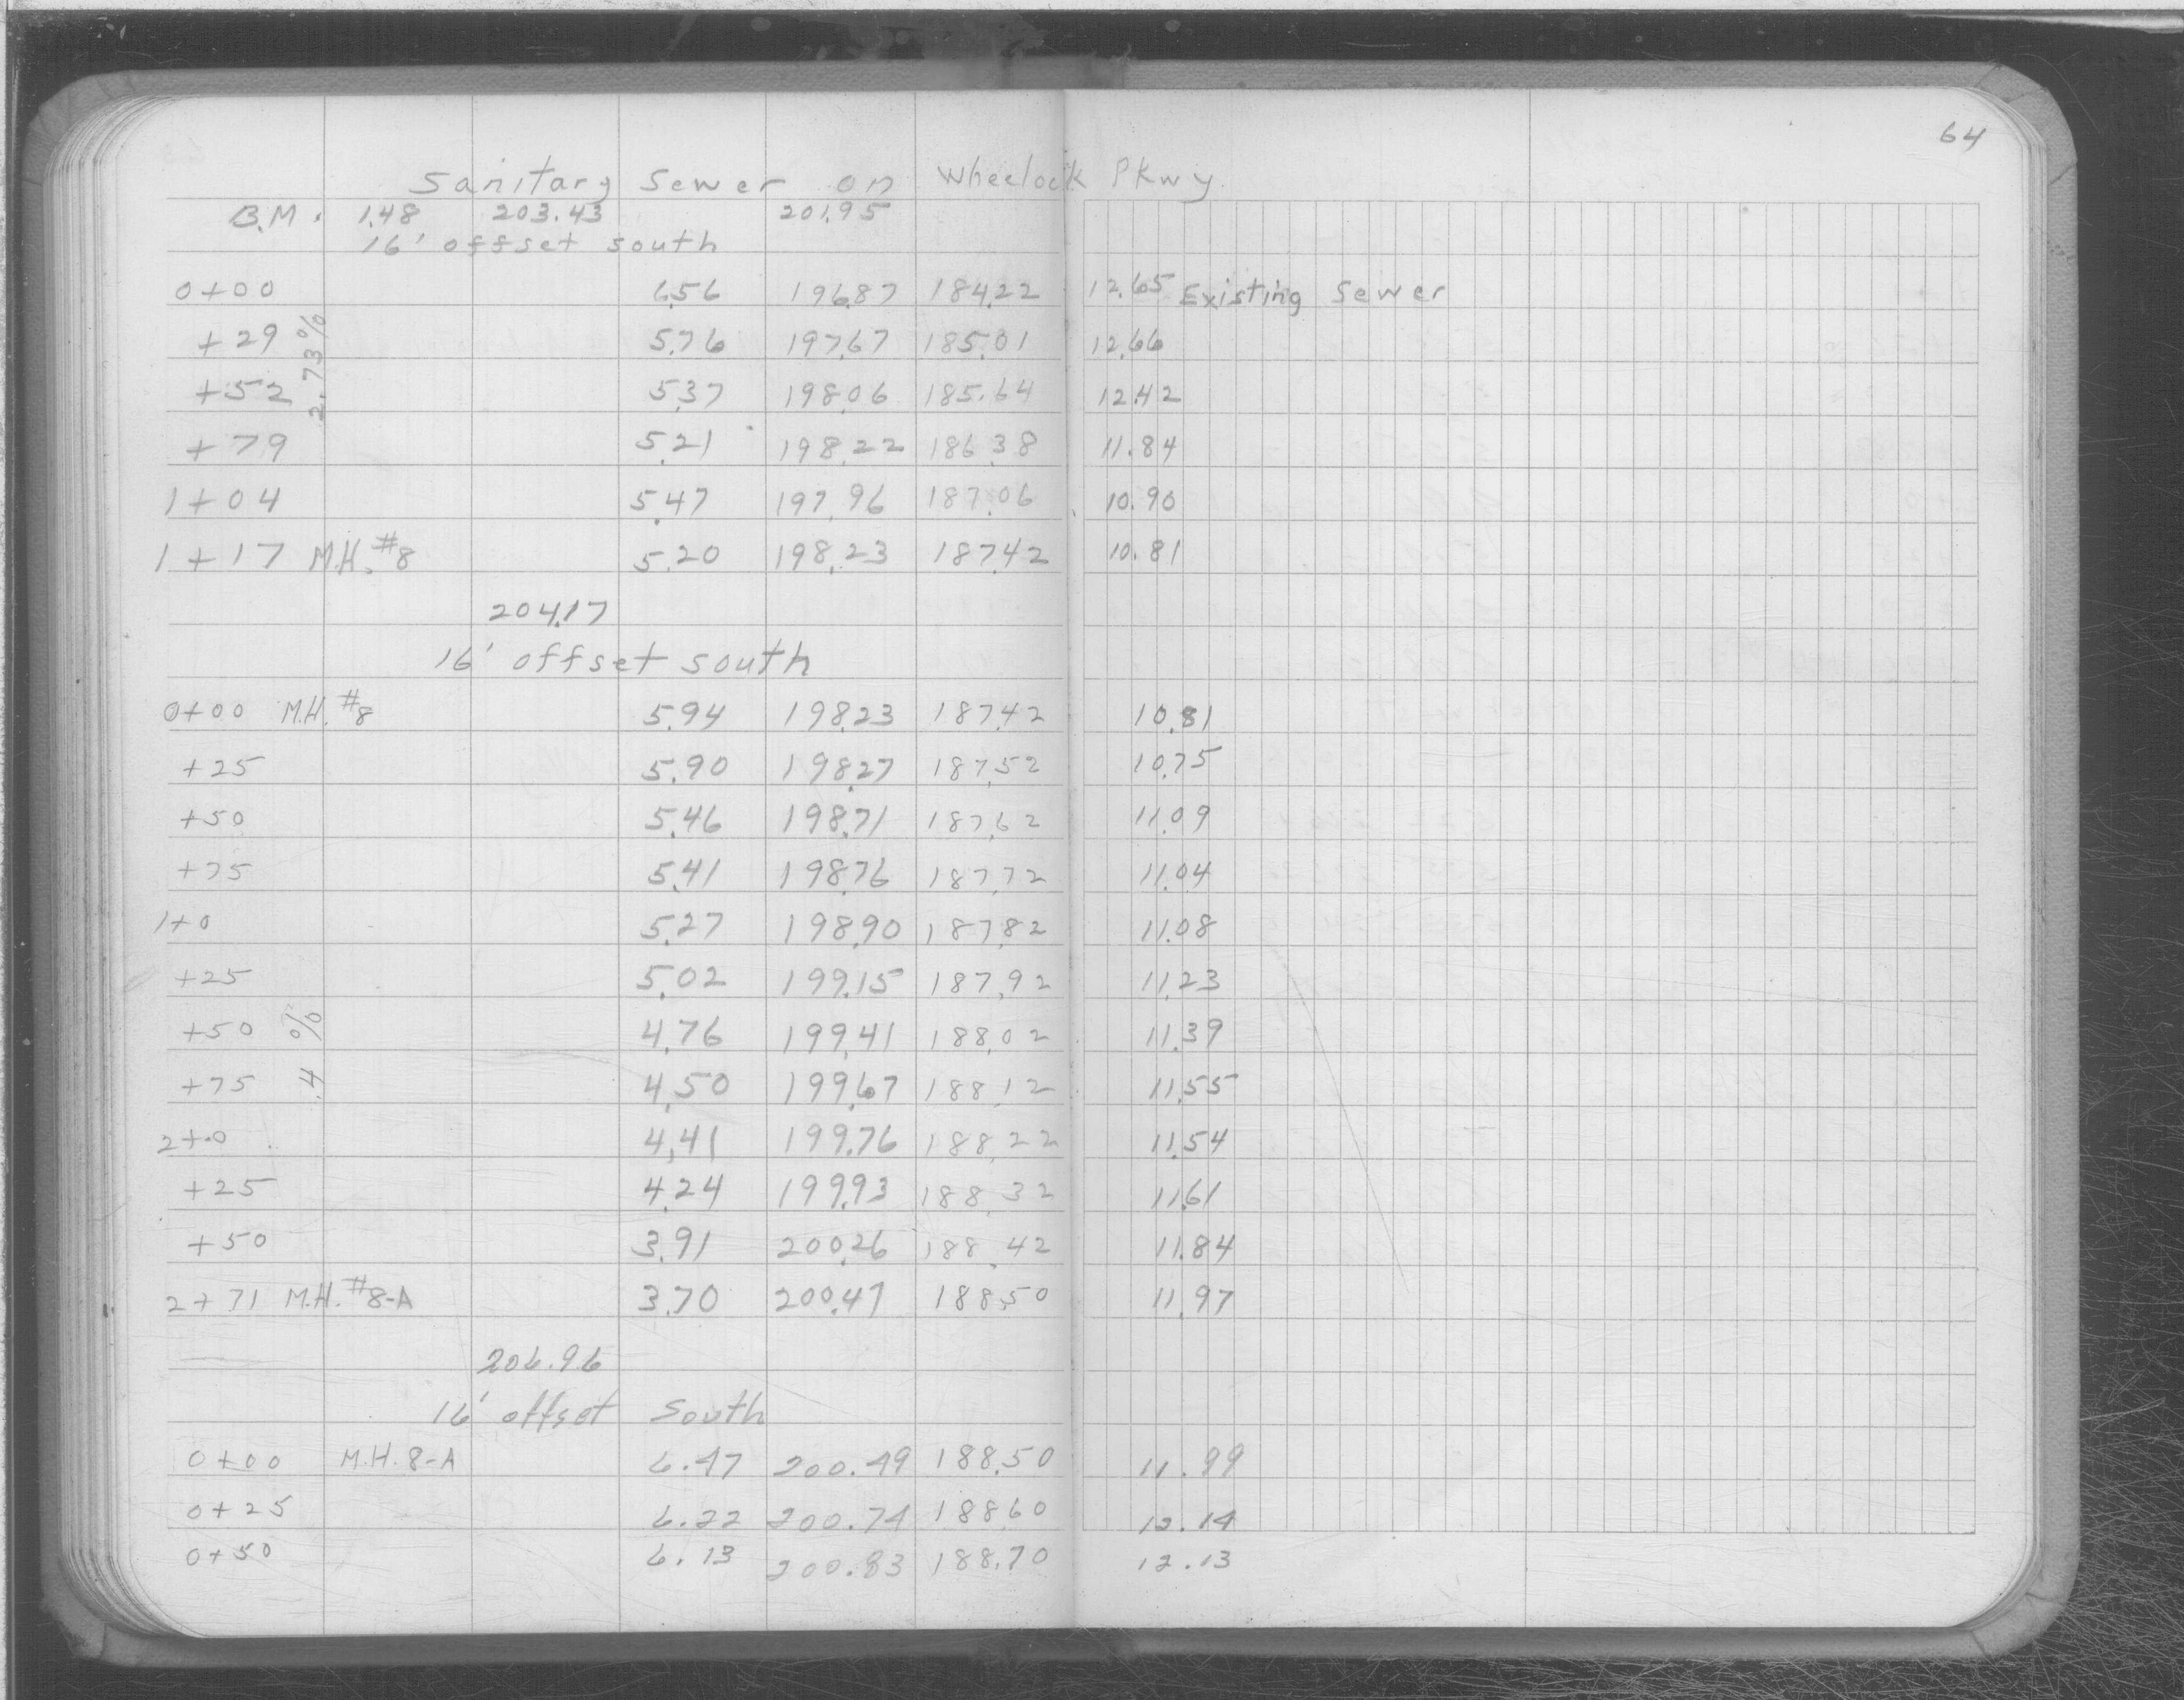 64
Sanitary Sewer on Wheelock Pkwy
B.M. 1.48 203.43 201.95
16' offset south
0+00 6.56 196.87 184.22 12.65 Existing Sewer
+29 5.76 197.67 185.01 12.66
2.73%
+52 5.37 198.06 185.64 12.42
+79 5.21 198.22 186.38 11.84
1+04 5.47 197.96 187.06 10.90
1+17 M.H. #8 5.20 198.23 187.42 10.81
204.17
16' offset south
0+00 M.H. #8 5.94 198.23 187.42 10.81
+25 5.90 198.27 187.52 10.75
+50 5.46 198.71 187.62 11.09
+75 5.41 198.76 187.72 11.04
1+0 5.27 198.90 187.82 11.08
+25 5.02 199.15 187.92 11.23
+50 4.76 199.41 188.02 11.39
.4 %
+75 4.50 199.67 188.12 11.55
2+0 4.41 199.76 188.22 11.54
+25 4.24 199.93 188.32 11.61
+50 3.91 200.26 188.42 11.84
2+71 M.H. #8-A 3.70 200.47 188.50 11.97
206.96
16' offset South
0+00 M.H. 8-A 6.47 200.49 188.50 11.99
0+25 6.22 200.74 188.60 12.14
0+50 6.13 200.83 188.70 12.13